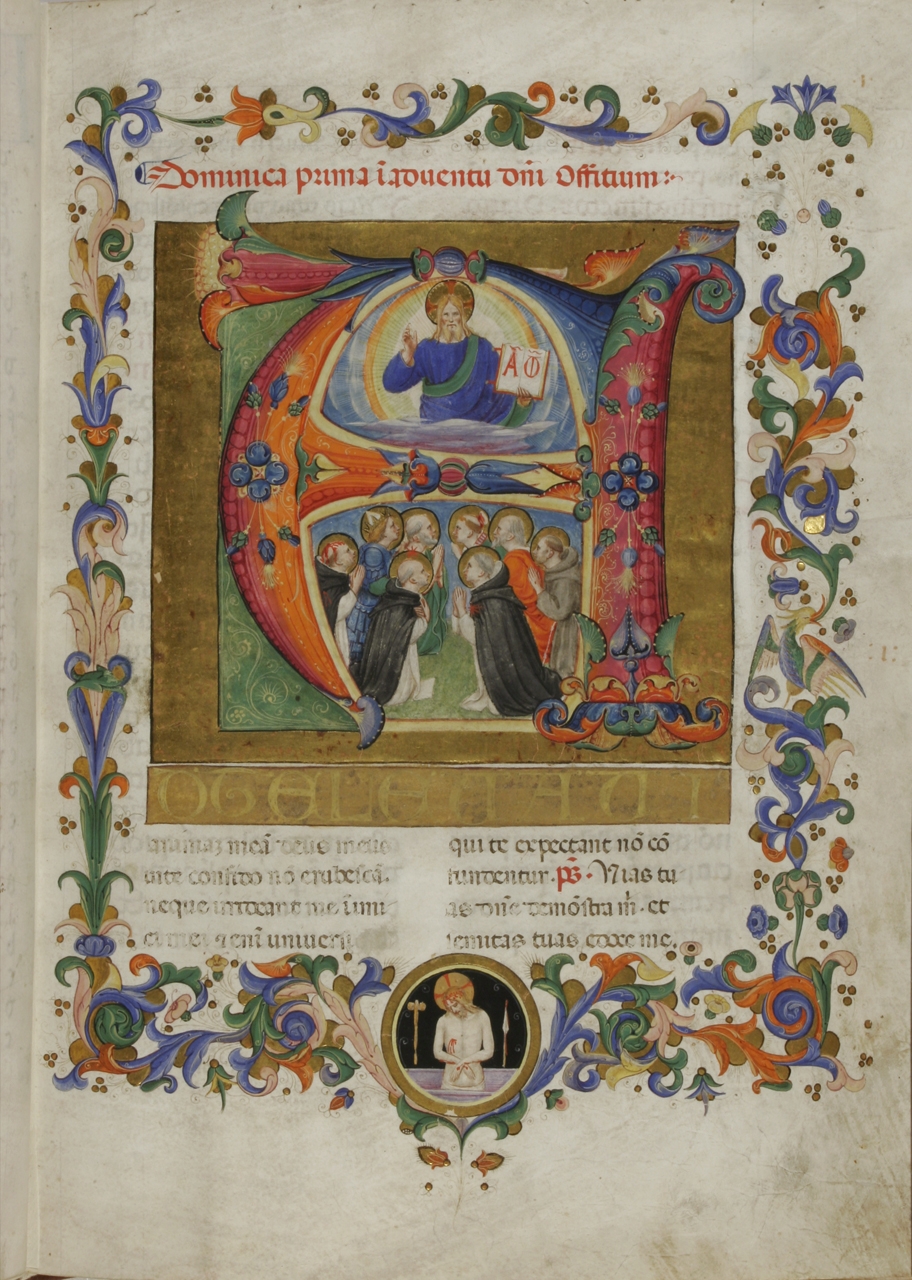 Dominica prima ĩ aduentu dñi Offitium:~
A ω
A
D TE LEUAUI
animaz meã deus meus
inte confido nõ erubescã.
neque irrideant me ĩimi
ci mei ⁊ eni᷈ uniuersi
qui te expectant nõ cõ
fundentur. p̃s. Uias tu
as dñe demõstra m̃. et
semitas tuas edoce me.